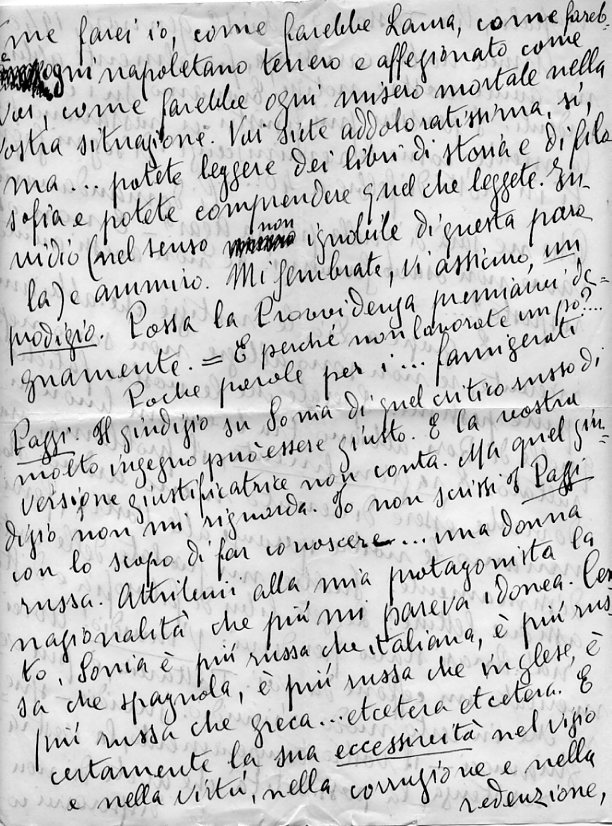 me farei io, come farebbe Laura, come fareb-
ogni napoletano tenero e affezionato come
voi, come farebbe ogni misero mortale nella
vostra situazione. Voi siete addoloratissima, sì,
ma... potete leggere dei libri di storia e di filo
sofia e potete comprendere quel che leggete. In-
vidio (nel senso non ignobile di questa paro
la) e ammiro. Mi sembrate, vi assicuro, un
prodigio. Possa la Provvidenza premiarvi de=
gnamente. = E perché non lavorate un po'?...
Poche parole per i... famigerati
Pazzi. Il giudizio su Sonia di quel critico russo di
molto ingegno può essere giusto. E la vostra
versione giustificatrice non conta. Ma quel giu-
dizio non mi riguarda. Io non scrissi I Pazzi
con lo scopo di far conoscere... una donna
russa. Attribuii alla mia protagonista la
nazionalità che più mi pareva idonea. Cer
to, Sonia è più russa che italiana, è più rus-
sa che spagnola, è più russa che inglese, è
più russa che greca... etcetera etcetera. E
certamente la sua eccessività nel vizio
e nella virtù, nella corruzione e nella
redenzione,